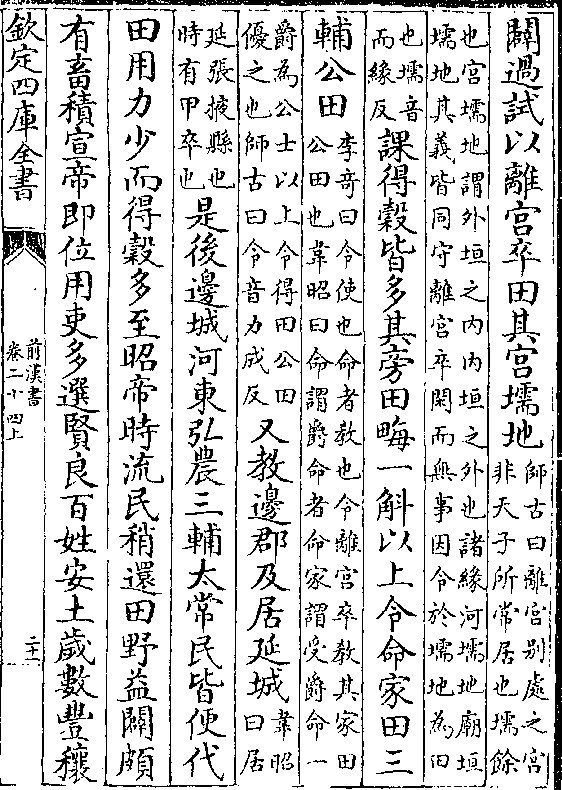 闢過試以離宮卒田其宮壖地師古曰離宮别處之宮
非天子所常居也壖餘
也宮壖地謂外垣之内内垣之外也諸緣河壖地廟垣
壖地其義皆同守離宮卒閑而無事因令於壖地為田
也壖音
而緣反課得穀皆多其旁田畮一斛以上令命家田三
輔公田李奇曰令使也命者教也令離宮卒教其家田
公田也韋昭曰命謂爵命者命家謂受爵命一
爵為公士以上令得田公田
優之也師古曰令音力成反又教邊郡及居延城韋昭
曰居
延張掖縣也
時有甲卒也是後邊城河東弘農三輔太常民皆便代
田用力少而得穀多至昭帝時流民稍還田野益闢頗
有畜積宣帝即位用吏多選賢良百姓安土歲數豐穰
欽定四庫全書
前漢書
卷二十四上
二十一